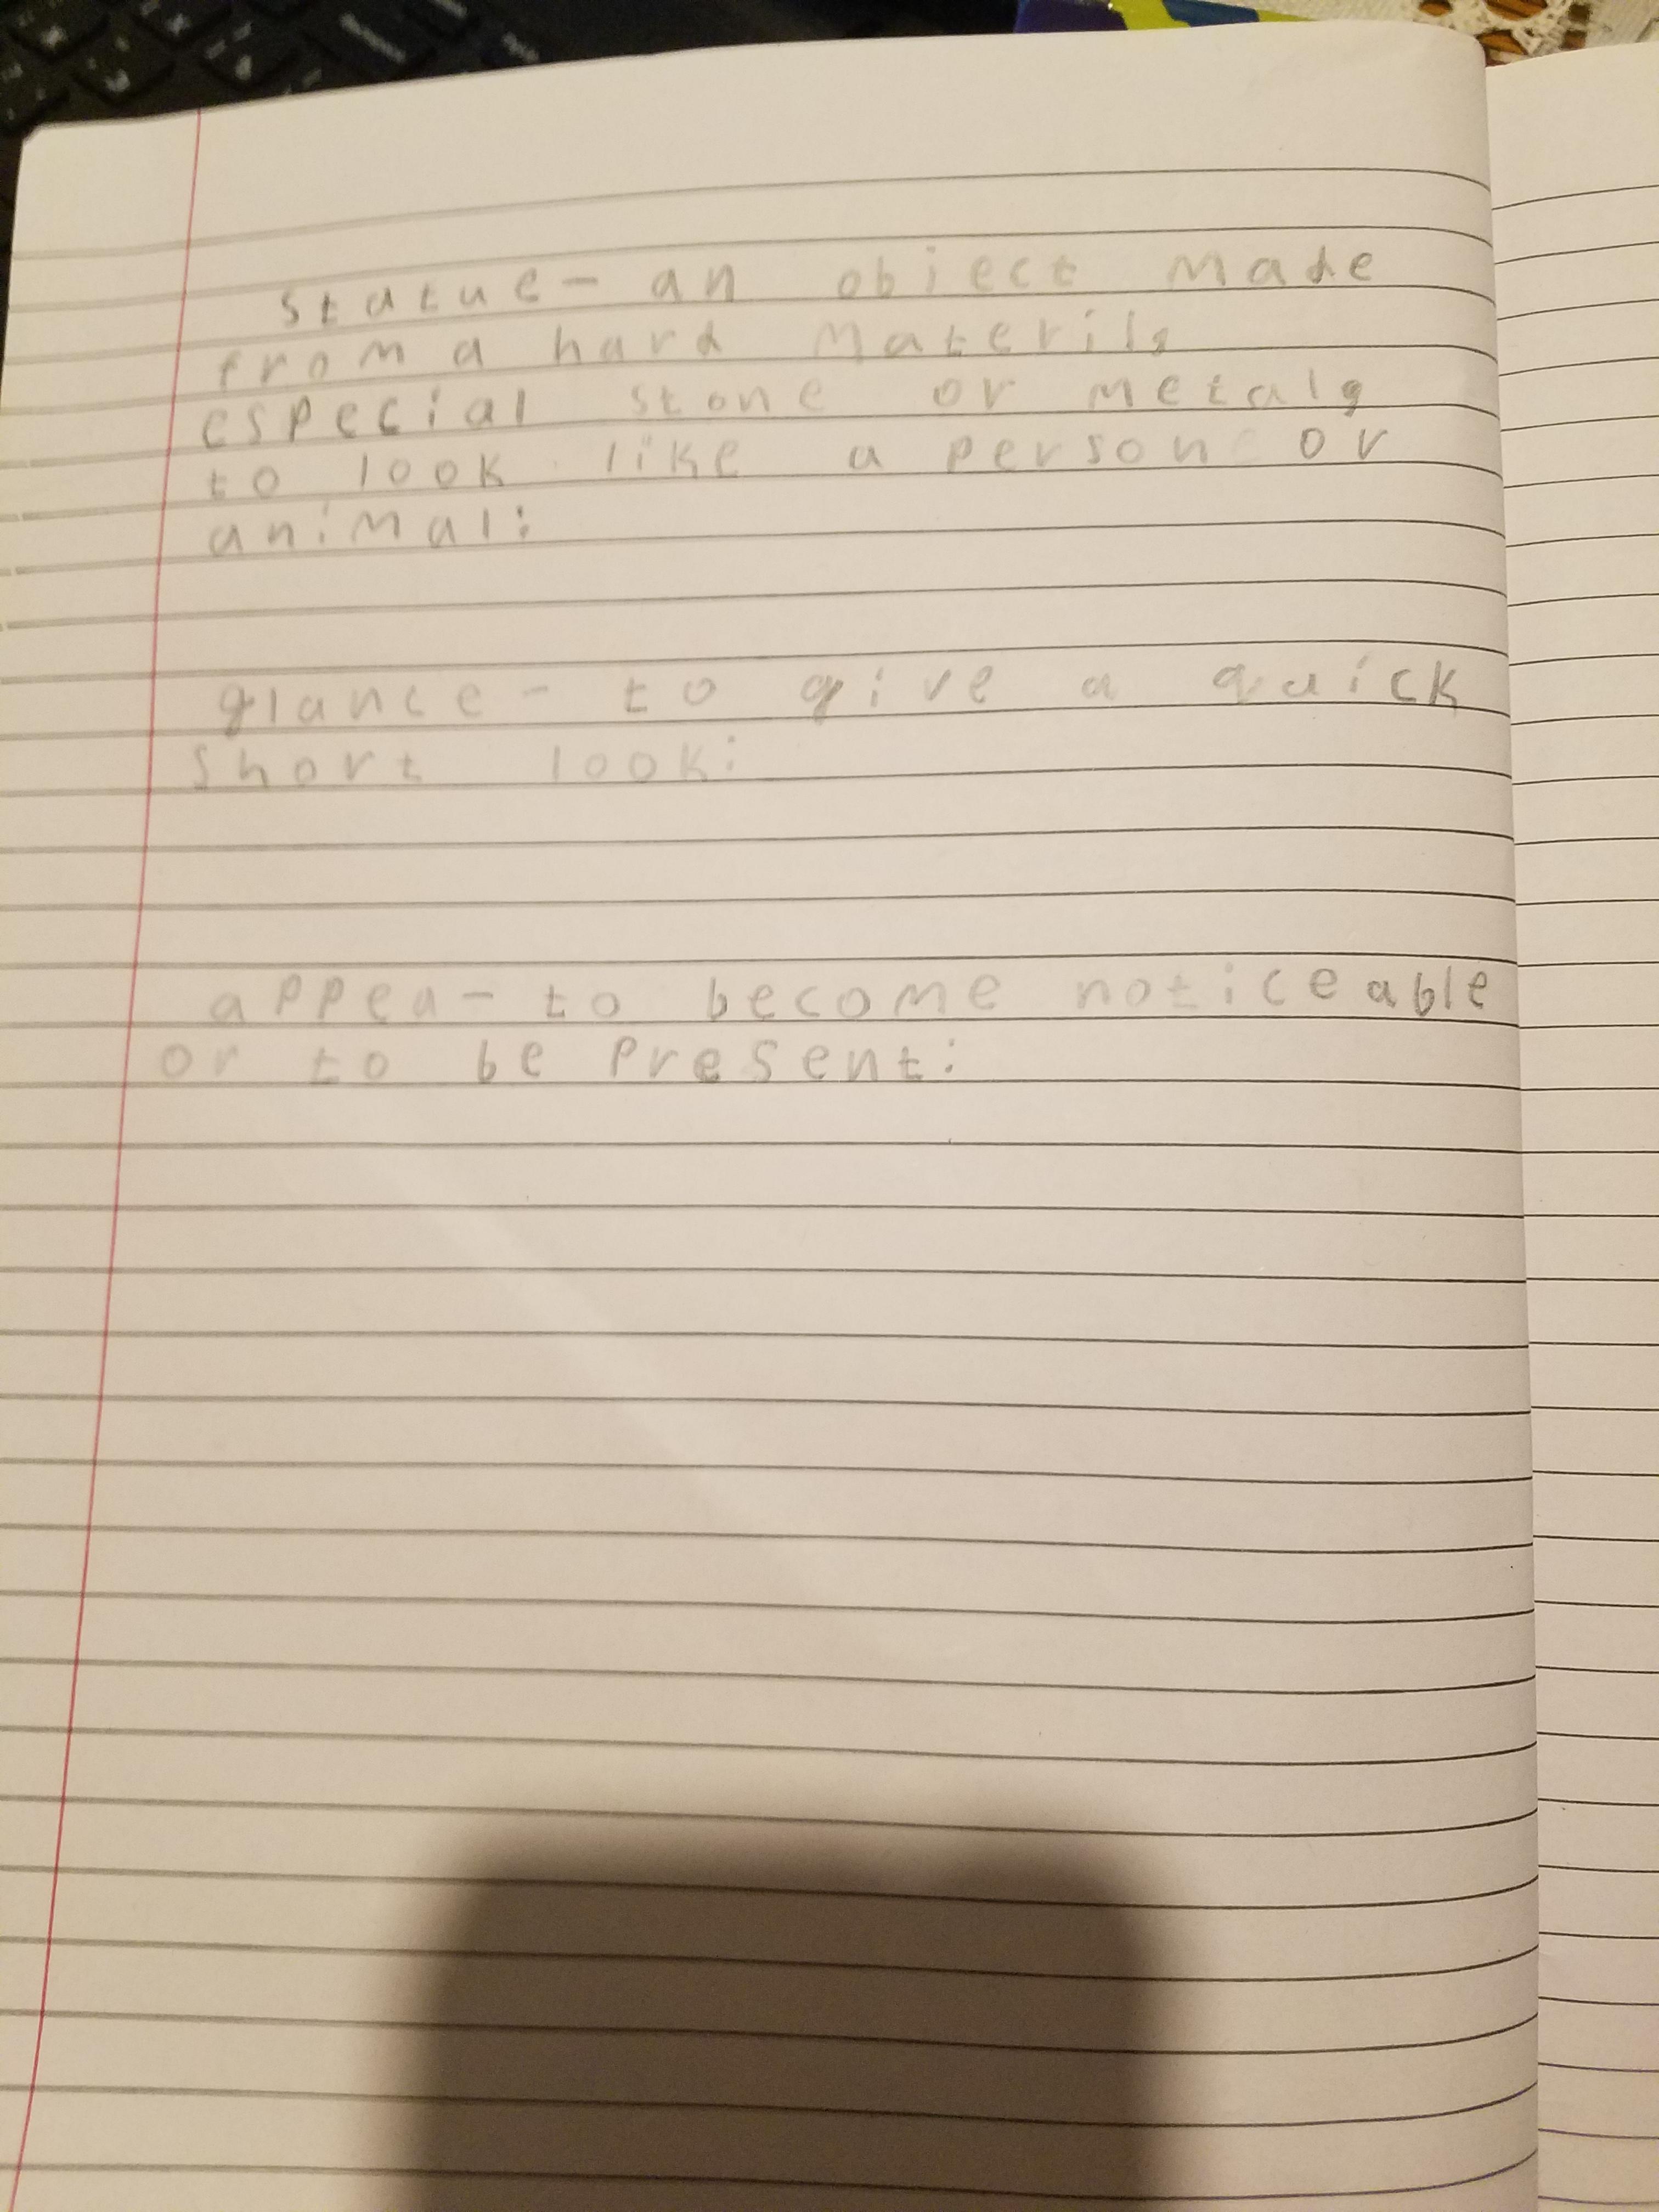 statue - an object made
from a hard materil,
especial stone or metal,
to look like a person or
animal:
glance - to give a quick
short look:
appea - to become noticeable
or to be present: